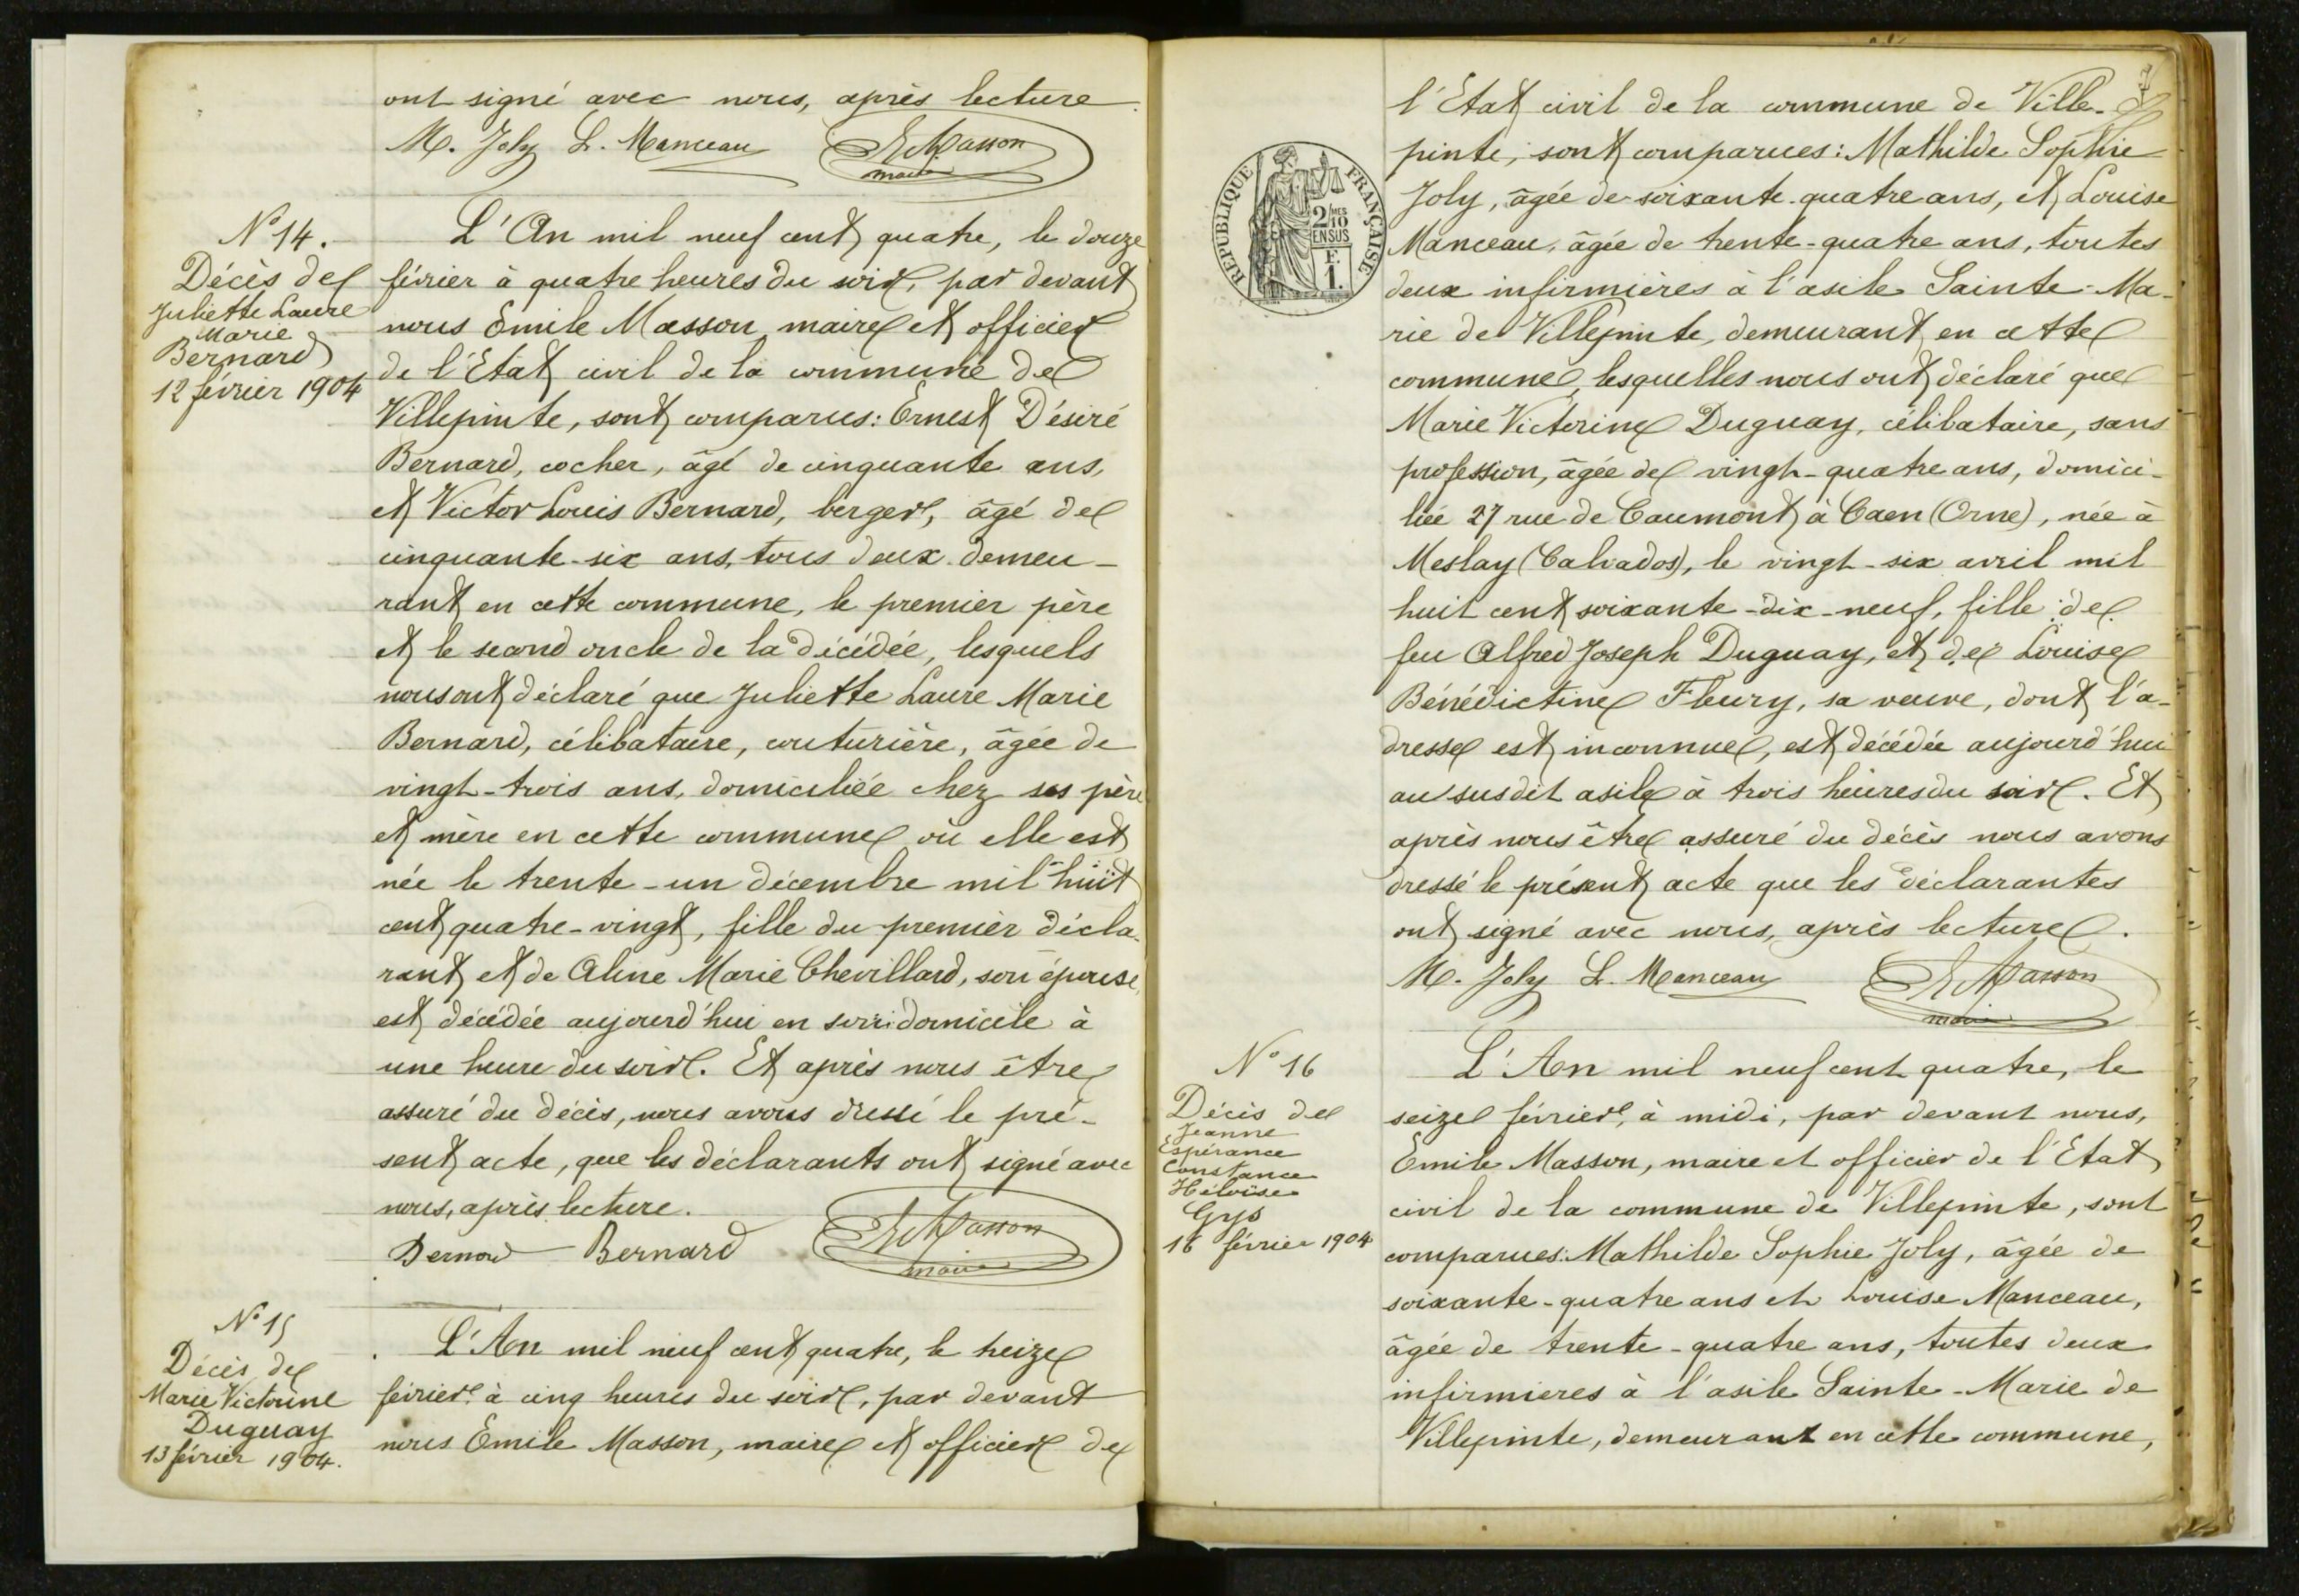 ont signé avec nous, après lecture.
M. Joly L. Manceau E. Masson
maire
N° 14.
Décès de
Juliette Laure
Marie
Bernard
12 février 1904
L'An mil neuf cent quatre, le douze
février à quatre heures du soir, par devant
nous Emile Masson, maire et officier
de l'Etat civil de la commune de
Villepinte, sont comparus: Ernest Désiré
Bernard, cocher, âgé de cinquante ans,
et Victor Louis Bernard, berger, âgé de
cinquante-six ans, tous deux demeu-
rant en cette commune, le premier père
et le second oncle de la décédée, lesquels
nous ont déclaré que Juliette Laure Marie
Bernard, célibataire, couturière, âgée de
vingt-trois ans, domiciliée chez ses père
et mère en cette commune où elle est
née le trente-un décembre mil huit
cent quatre-vingt, fille du premier décla-
rant et de Aline Marie Chevillard, son épouse,
est décédée aujourd'hui en son domicile à
une heure du soir. Et après nous être
assuré du décès, nous avons dressé le pré-
sent acte, que les déclarants ont signé avec
nous, après lecture.
Bernard Bernard E. Masson
maire
N° 15
Décès de
Marie Victorine
Duguay
13 février 1904.
L'An mil neuf cent quatre, le treize
février à cinq heures du soir, par devant
nous Emile Masson, maire et officier de
7
RÉPUBLIQUE FRANÇAISE
2/10 MES
EN SUS
F.
1.
l'Etat civil de la commune de Ville-
pinte, sont comparues: Mathilde Sophie
Joly, âgée de soixante-quatre ans, et Louise
Manceau, âgée de trente-quatre ans, toutes
deux infirmières à l'asile Sainte-Ma-
rie de Villepinte, demeurant en cette
commune, lesquelles nous ont déclaré que
Marie Victorine Duguay, célibataire, sans
profession, âgée de vingt-quatre ans, domici-
liée 27 rue de Caumont à Caen (Orne), née à
Meslay (Calvados), le vingt-six avril mil
huit cent soixante-dix-neuf, fille de
feu Alfred Joseph Duguay, et de Louise
Bénédictine Fleury, sa veuve, dont l'a-
dresse est inconnue, est décédée aujourd'hui
au susdit asile à trois heures du soir. Et
après nous être assuré du décès nous avons
dressé le présent acte que les déclarantes
ont signé avec nous, après lecture.
M. Joly L. Manceau E. Masson
maire
N° 16
Décès de
Jeanne
Espérance
Constance
Héloïse
Gys
16 février 1904
L'An mil neuf cent quatre, le
seize février, à midi, par devant nous,
Emile Masson, maire et officier de l'Etat
civil de la commune de Villepinte, sont
comparues: Mathilde Sophie Joly, âgée de
soixante-quatre ans et Louise Manceau,
âgée de trente-quatre ans, toutes deux
infirmieres à l'asile Sainte-Marie de
Villepinte, demeurant en cette commune,